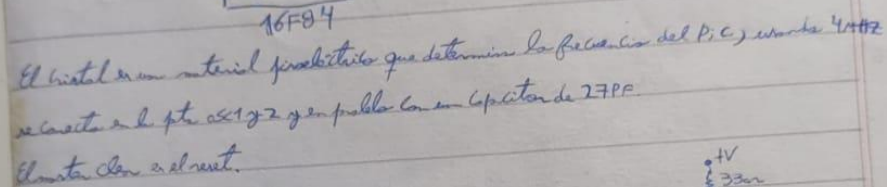 16F84
El cristal es un material piroelectrico que determina la frecuencia del PIC, usando 4MHz
se conecta en el pto osc1 y 2 y en paralelo con un capacitor de 27PF.
El master clear es el reset.
+V
330Ω